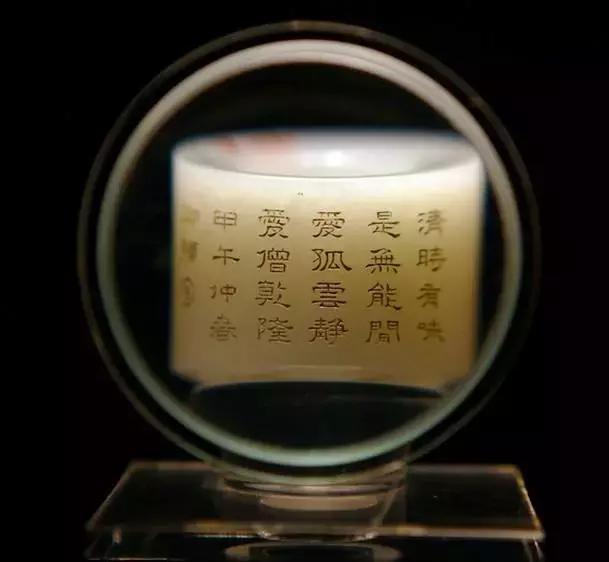 清時有味
是無能閒
愛孤雲靜
愛僧乾隆
甲午仲春